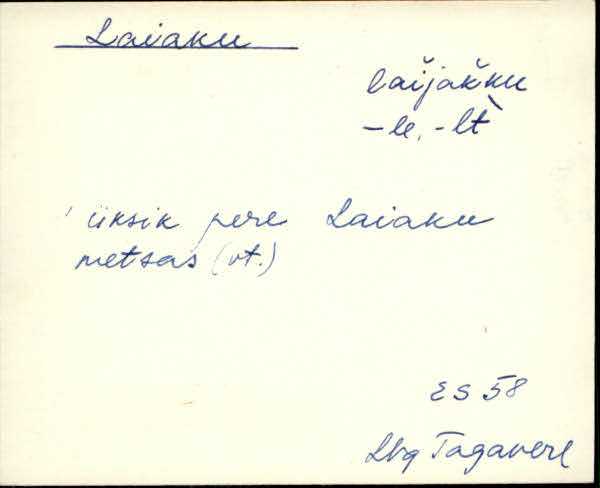 Laiaku
laĭjakku
-le, -lt
üksik pere Laiaku
metsas (vt.)
ES 58
Lbg Tagavere